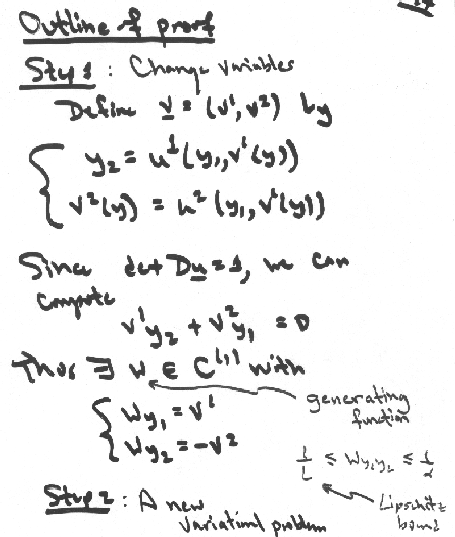 Outline of proof
Step 1: Change variables
Define v = (v¹, v²) by
{ y₂ = u¹(y₁, v¹(y))
v²(y) = u²(y₁, v¹(y))
Since det Du = 1, we can
compute
v¹y₂ + v²y₁ = 0
Thus ∃ w ∈ C¹,¹ with
generating
function
{ wy₁ = v¹
wy₂ = -v²
1/L ≤ wy₁y₂ ≤ 1/α
Lipschitz
bound
Step 2: A new
variational problem